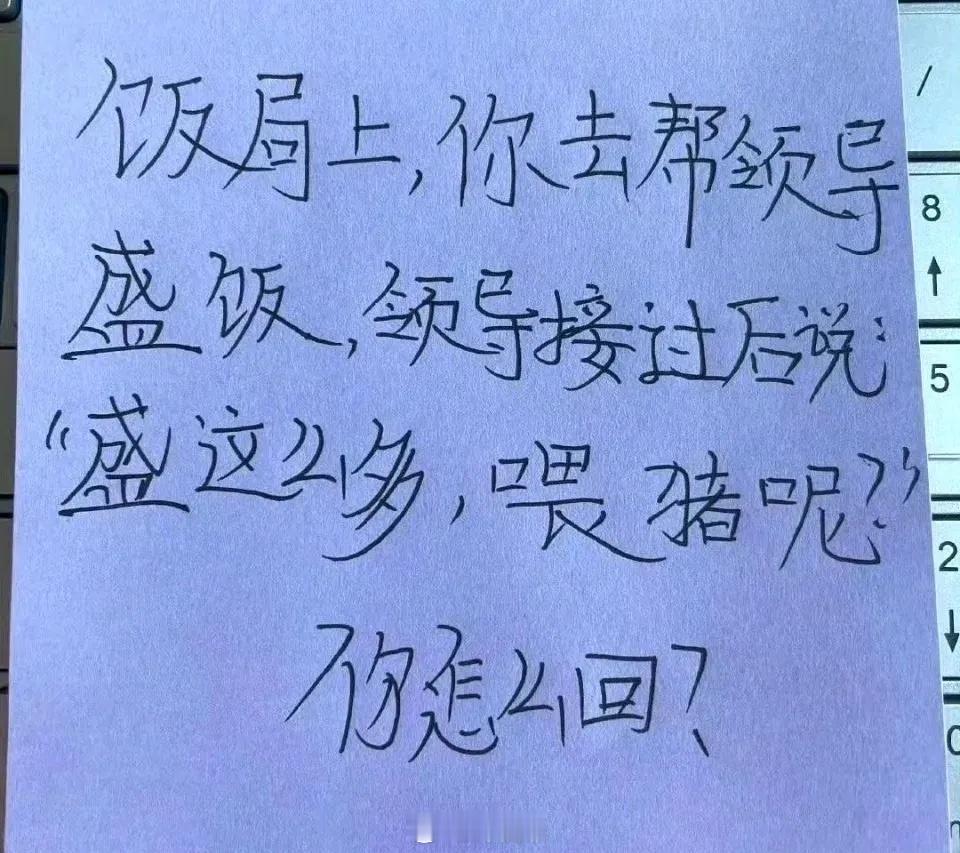 饭局上，你去帮领导
盛饭，领导接过后说：
“盛这么多，喂猪呢？”
你怎么回？
/
8
↑
5
2
↓
0